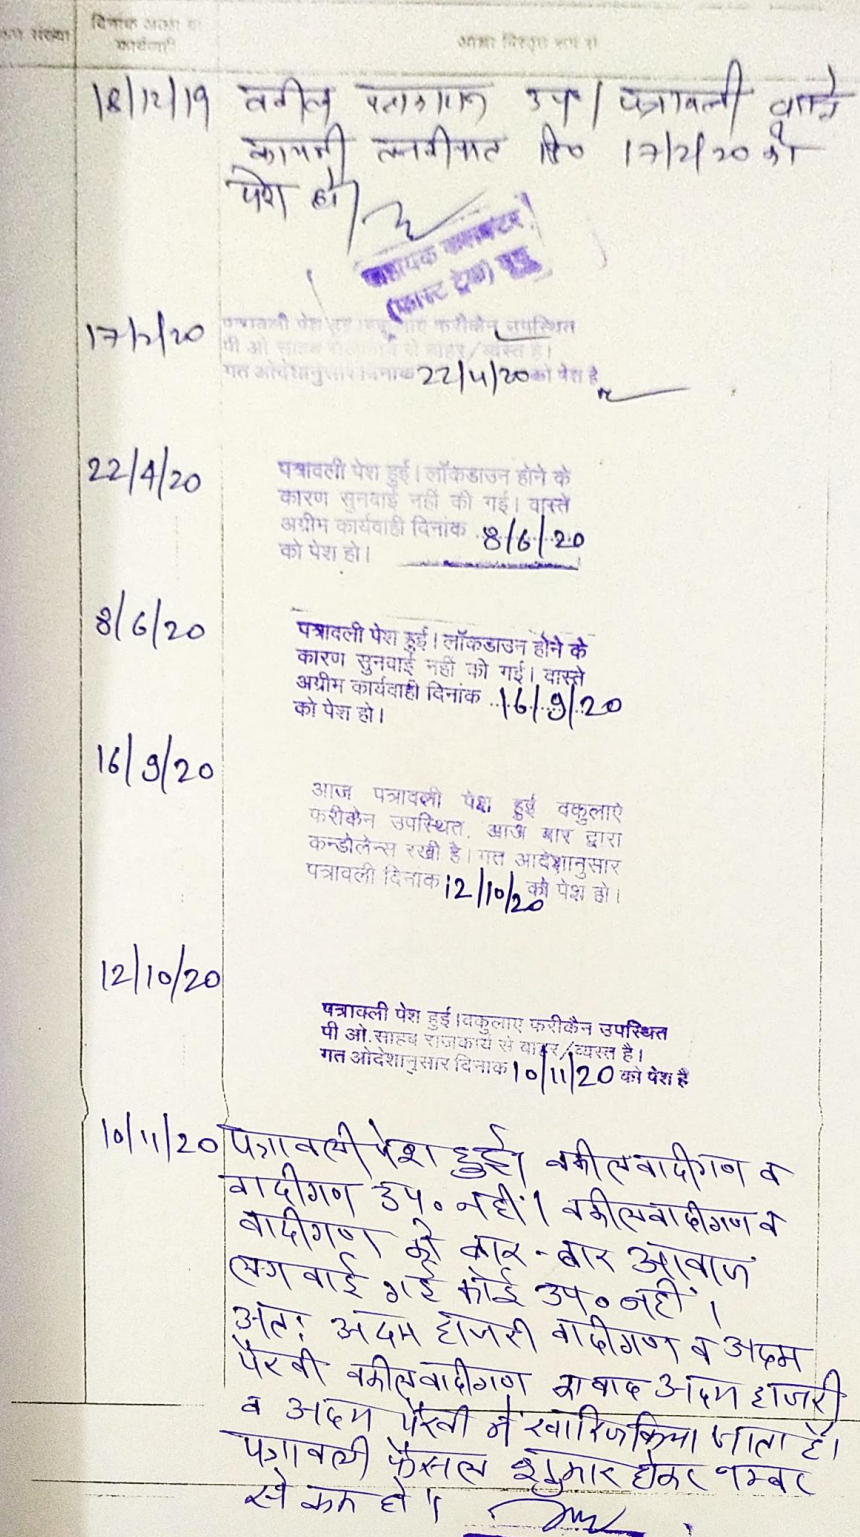 संख्या दिनांक कार्यवाही
आज्ञा विस्तृत रूप से
18/12/19 वकील उप। पत्रावली वास्ते
कायमी तनकीयात दि० 17/2/20 को
पेश हो।
सहायक कलक्टर
(फास्ट ट्रेक) दूदू
17/2/20 पत्रावली पेश हुई। वकुलाए फरीकैन उपस्थित
पी ओ साहब राजकार्य से बाहर/व्यस्त है।
गत ओदेशानुसार दिनाक 22/4/20 को पेश है
22/4/20 पत्रावली पेश हुई। लॉकडाउन होने के
कारण सुनवाई नहीं की गई। वास्ते
अग्रीम कार्यवाही दिनांक 8/6/20
को पेश हो।
8/6/20 पत्रावली पेश हुई। लॉकडाउन होने के
कारण सुनवाई नहीं की गई। वास्ते
अग्रीम कार्यवाही दिनांक 16/9/20
को पेश हो।
16/9/20
आज पत्रावली पेश हुई वकुलाऐ
फरीकेन उपस्थित, आज बार द्वारा
कन्डोलेन्स रखी है। गत आदेशानुसार
पत्रावली दिनाक 12/10/20 को पेश हो।
12/10/20
पत्रावली पेश हुई। वकुलाए फरीकैन उपस्थित
पी ओ. साहब राजकार्य से बाहर/व्यस्त है।
गत ओदेशानुसार दिनाक 10/11/20 को पेश है
10/11/20 पत्रावली पेश हुई। वकील वादीगण व
वादीगण उप० नहीं। वकील वादीगण व
वादीगण को बार-बार आवाज
लगवाई गई कोई उप० नहीं।
अतः अदम हाजरी वादीगण व अदम
पैरवी वकील वादीगण वाद अदम हाजरी
व अदम पैरवी में खारिज किया जाता है।
पत्रावली फैसल शुमार होकर नम्बर
से कम हो।